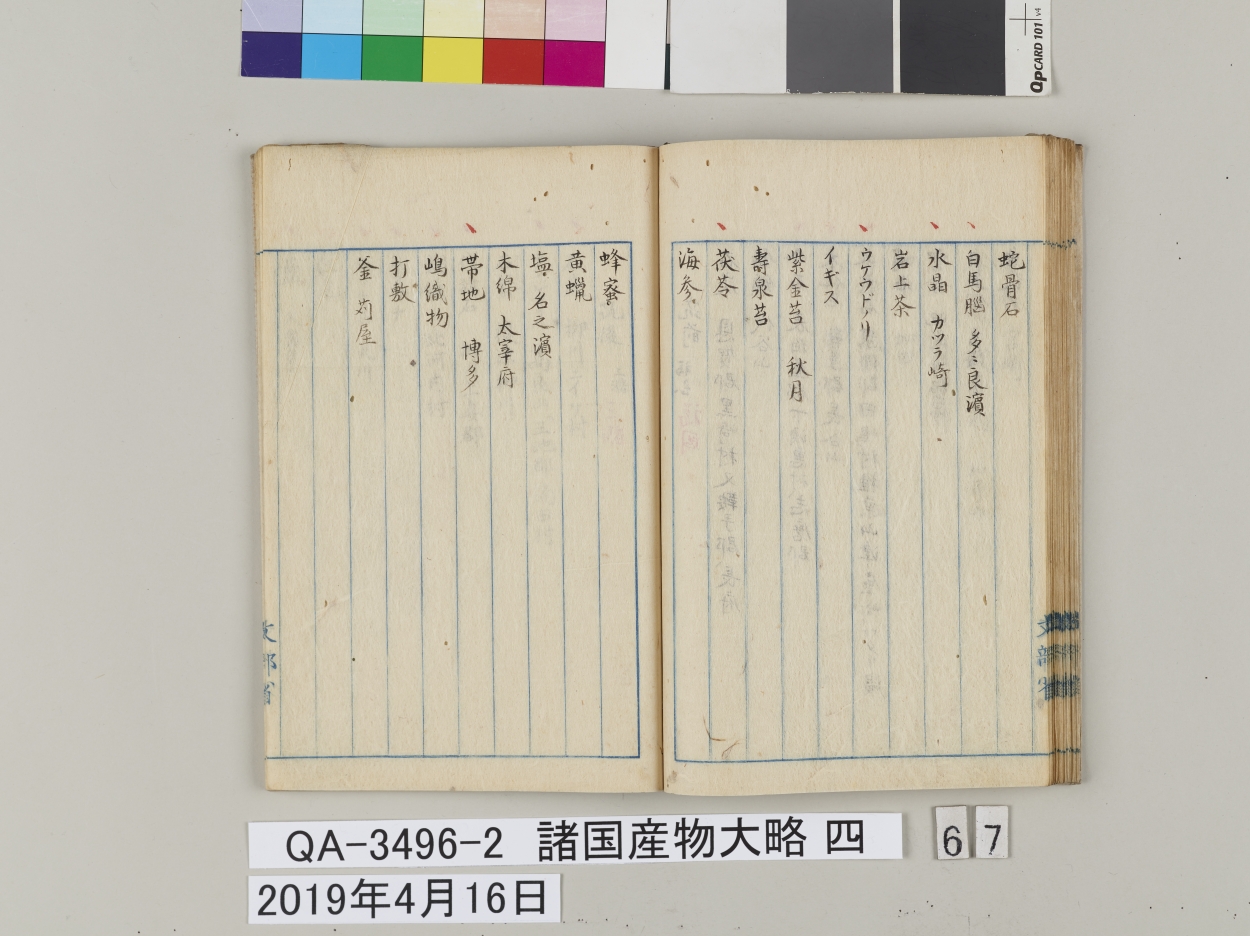 蛇骨石
白馬脳 多々良濱
水晶 カツラ崎
岩上茶
ウケウドノリ
イギス
紫金苔 秋月
壽泉苔
茯苓
海参
蜂蜜
黄蠟
塩 名之濱
木綿 太宰府
帯地 博多
嶋織物
打敷
釜 苅屋
文部省
文部省
QPCARD 101 v4
QA-3496-2 諸国産物大略 四
67
2019年4月16日